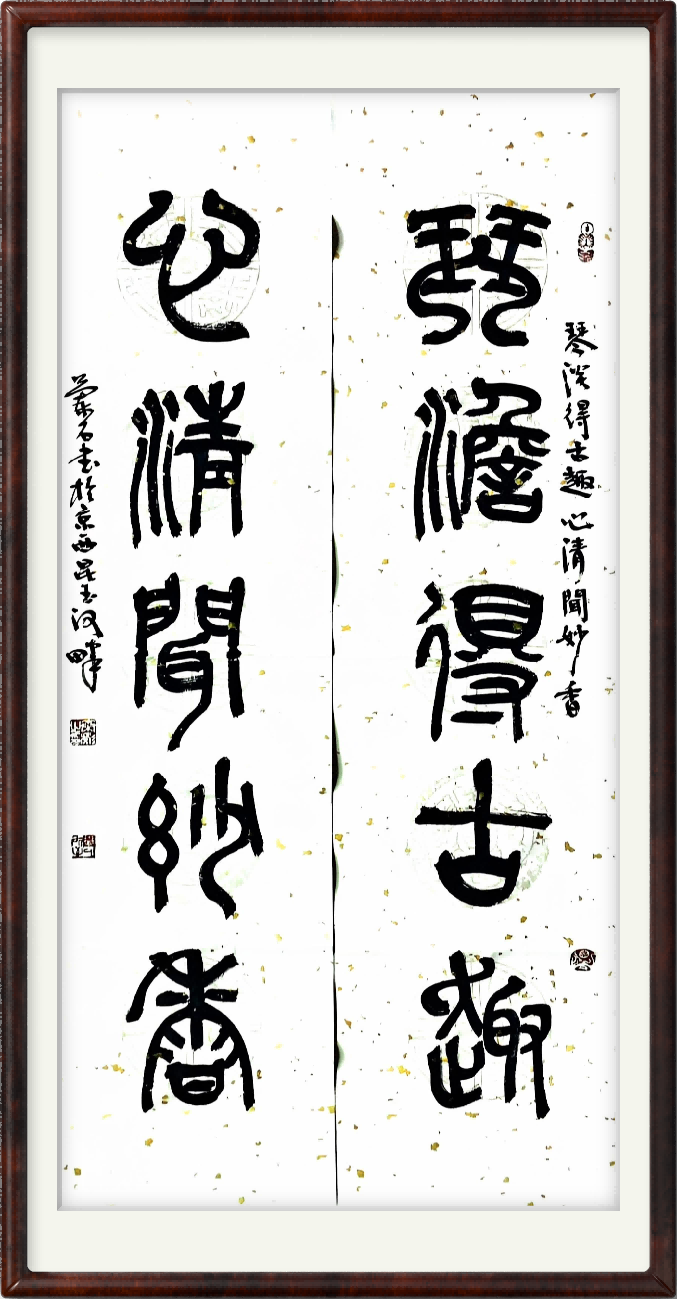 琴澹得古趣
心清聞妙香
琴淡得古趣心清聞妙香
石书於京西昆玉河畔